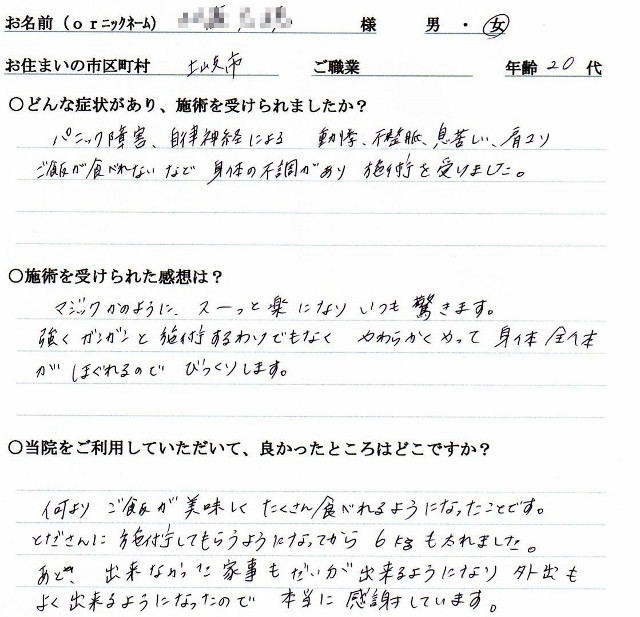 お名前(orニックネーム) 様 男・女
お住まいの市区町村 ご職業 年齢 20 代
○どんな症状があり、施術を受けられましたか?
パニック障害、自律神経による 動悸、不整脈、息苦しい、肩コリ
ご飯が食べれないなど 身体の不調があり 施術を受けました。
○施術を受けられた感想は?
マジックかのように、スーっと楽になり いつも驚きます。
強くガンガンと施術するわけでもなく やわらかくやって 身体全体
がほぐれるので びっくりします。
○当院をご利用していただいて、良かったところはどこですか?
何より ご飯が美味しく たくさん食べれるようになったことです。
とださんに施術してもらうようになってから 6kgも太れました。
あと 出来なかった家事も だいぶ出来るようになり 外出も
よく出来るようになったので 本当に感謝しています。